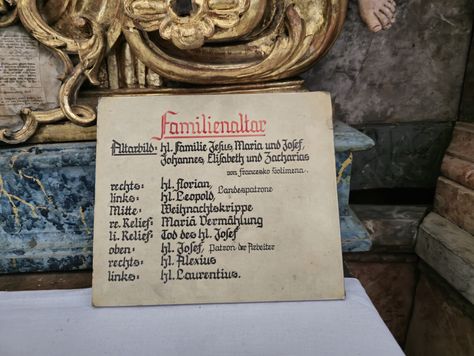 Familienaltar
Altarbild: hl. Familie Jesus, Maria und Josef,
Johannes, Elisabeth und Zacharias
von Francesko Solimena.
rechts: hl. florian, Landespatrone
links: hl. Leopold,
Mitte: Weihnachtskrippe
re. Relief: Mariä Vermählung
li. Relief: Tod des hl. Josef
oben: hl. Josef, Patron der Arbeiter
rechts: hl. Alexius
links: hl. Laurentius.